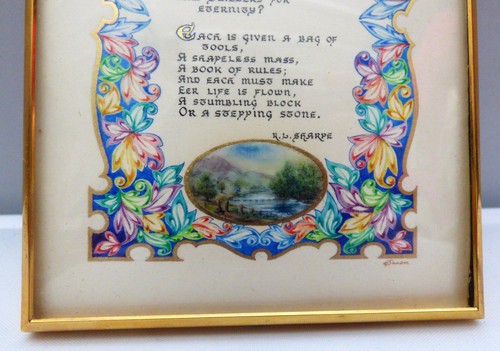 BUILDERS FOR
ETERNITY?
EACH IS GIVEN A BAG OF
TOOLS,
A SHAPELESS MASS,
A BOOK OF RULES;
AND EACH MUST MAKE
EER LIFE IS FLOWN,
A STUMBLING BLOCK
OR A STEPPING STONE.
R.L. SHARPE